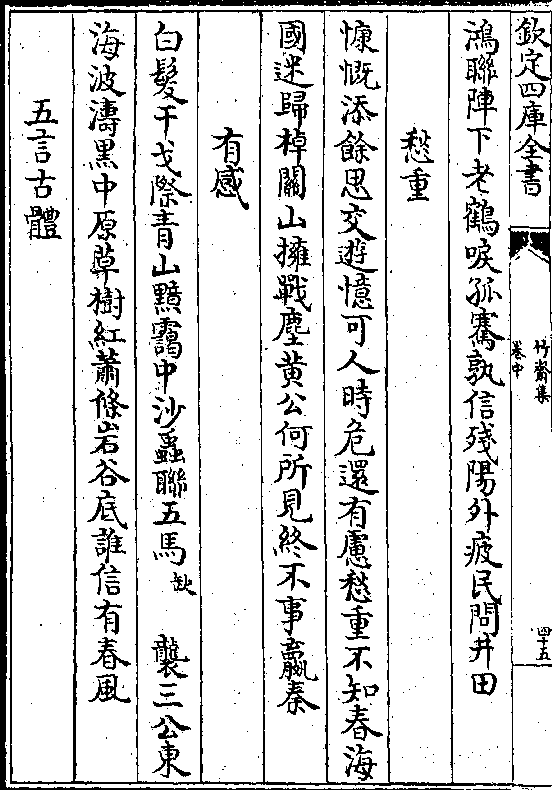 欽定四庫全書
竹齋集
卷中
四十五
鴻聯陣下老鶴唳孤騫孰信殘陽外疲民問井田
愁重
慷慨添餘思交遊憶可人時危還有慮愁重不知春海
國迷歸棹關山擁戰塵黃公何所見終不事嬴秦
有感
白髮干戈際青山黯靄中沙蟲聯五馬缺 襲三公東
海波濤黑中原草樹紅蕭條岩谷底誰信有春風
五言古體